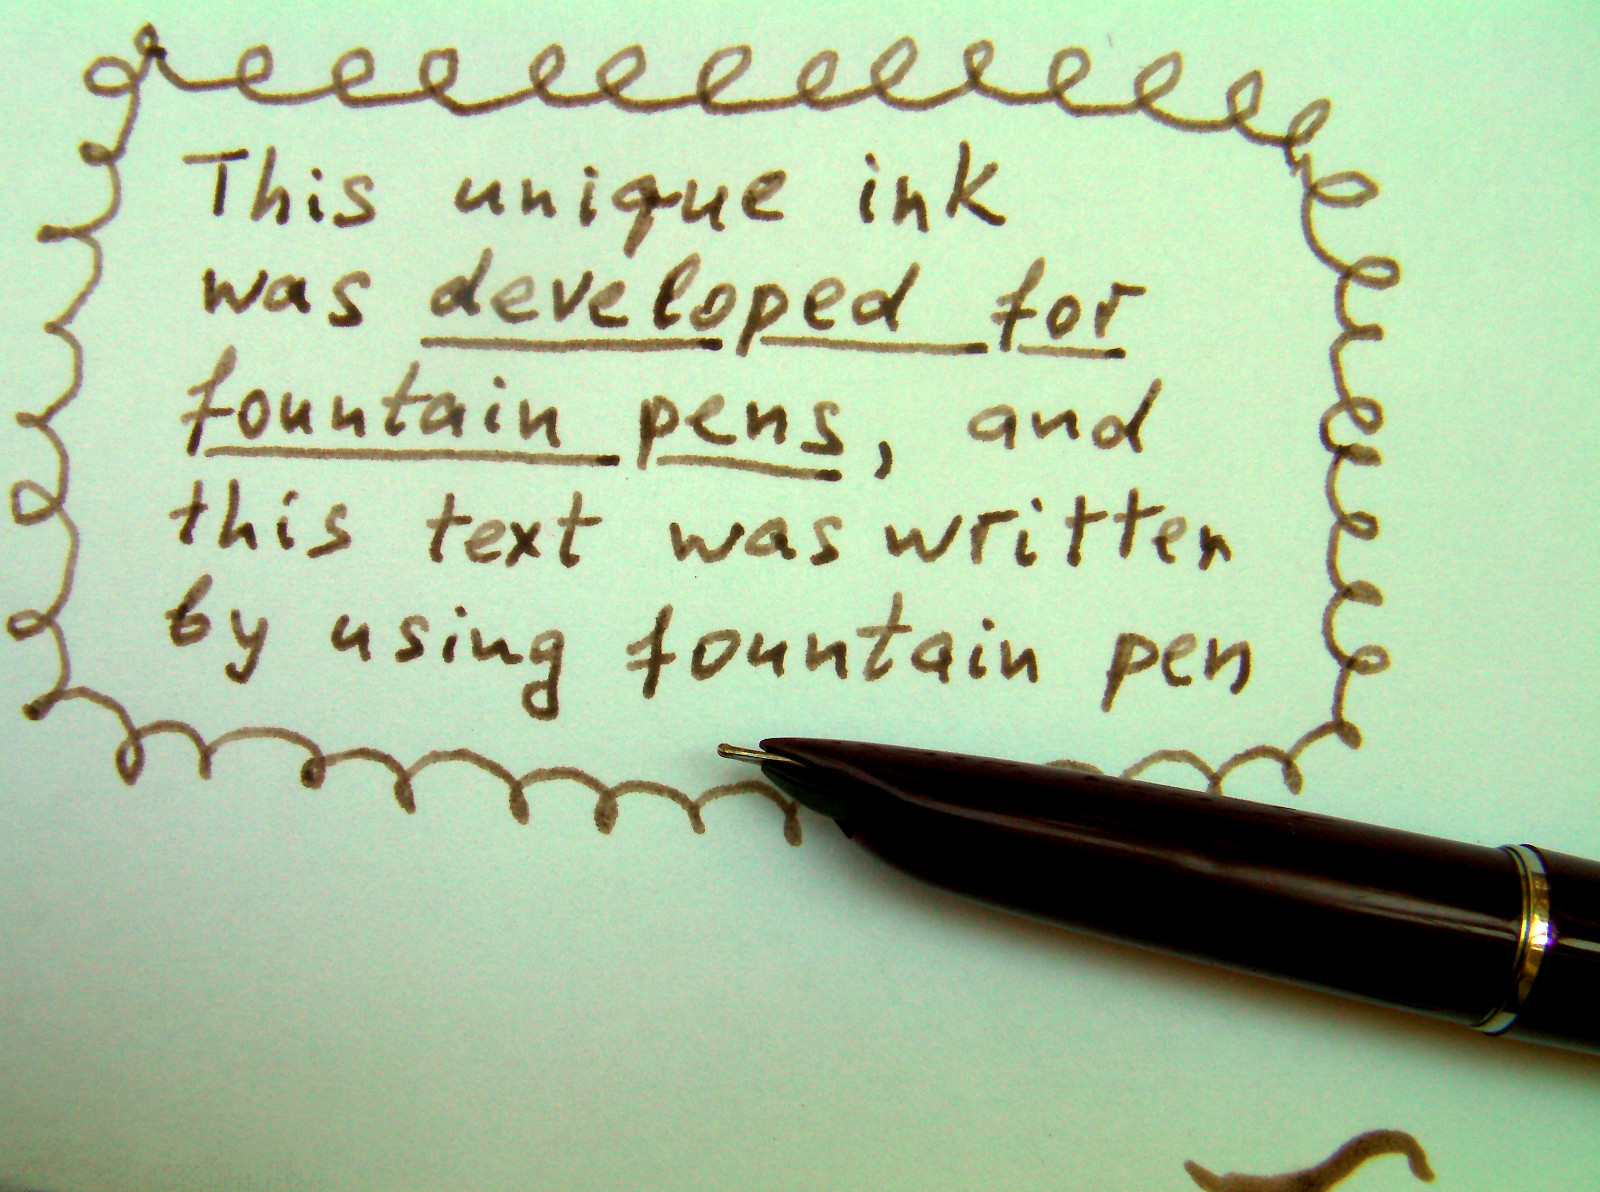 This unique ink
was developed for
fountain pens, and
this text was written
by using fountain pen